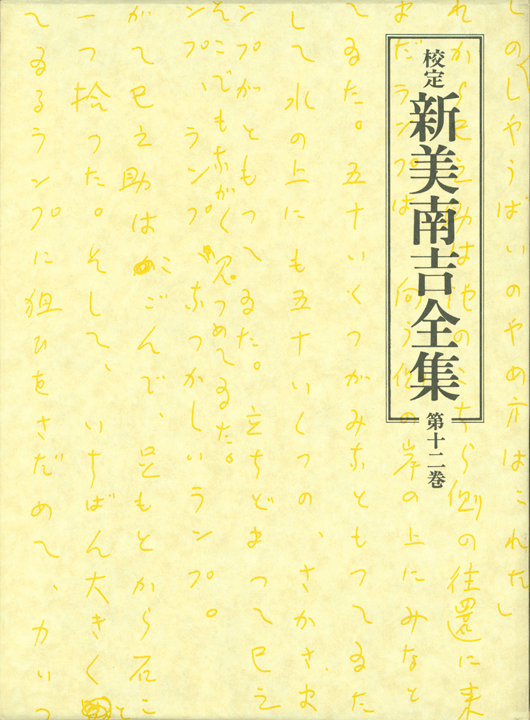 校定
新美南吉全集
第十二巻
しの、しやうばいのやめ方はこれだ
れから巳之助は池のこちら側の往還に来
まだランプは、向う側の岸の上にみなと
てゐた。五十いくつがみなともつてゐた
して水の上にも五十いくつの、さかさま
ンプがともつてゐた。立ちどまつて巳之
そこでもながく見つめてゐた。
ンプ、ランプ、なつかしいランプ。
がて巳之助はかごんで、足もとから石こ
一つ拾つた。そして、いちばん大きくと
てゐるランプに狙ひをさだめて、力いつ